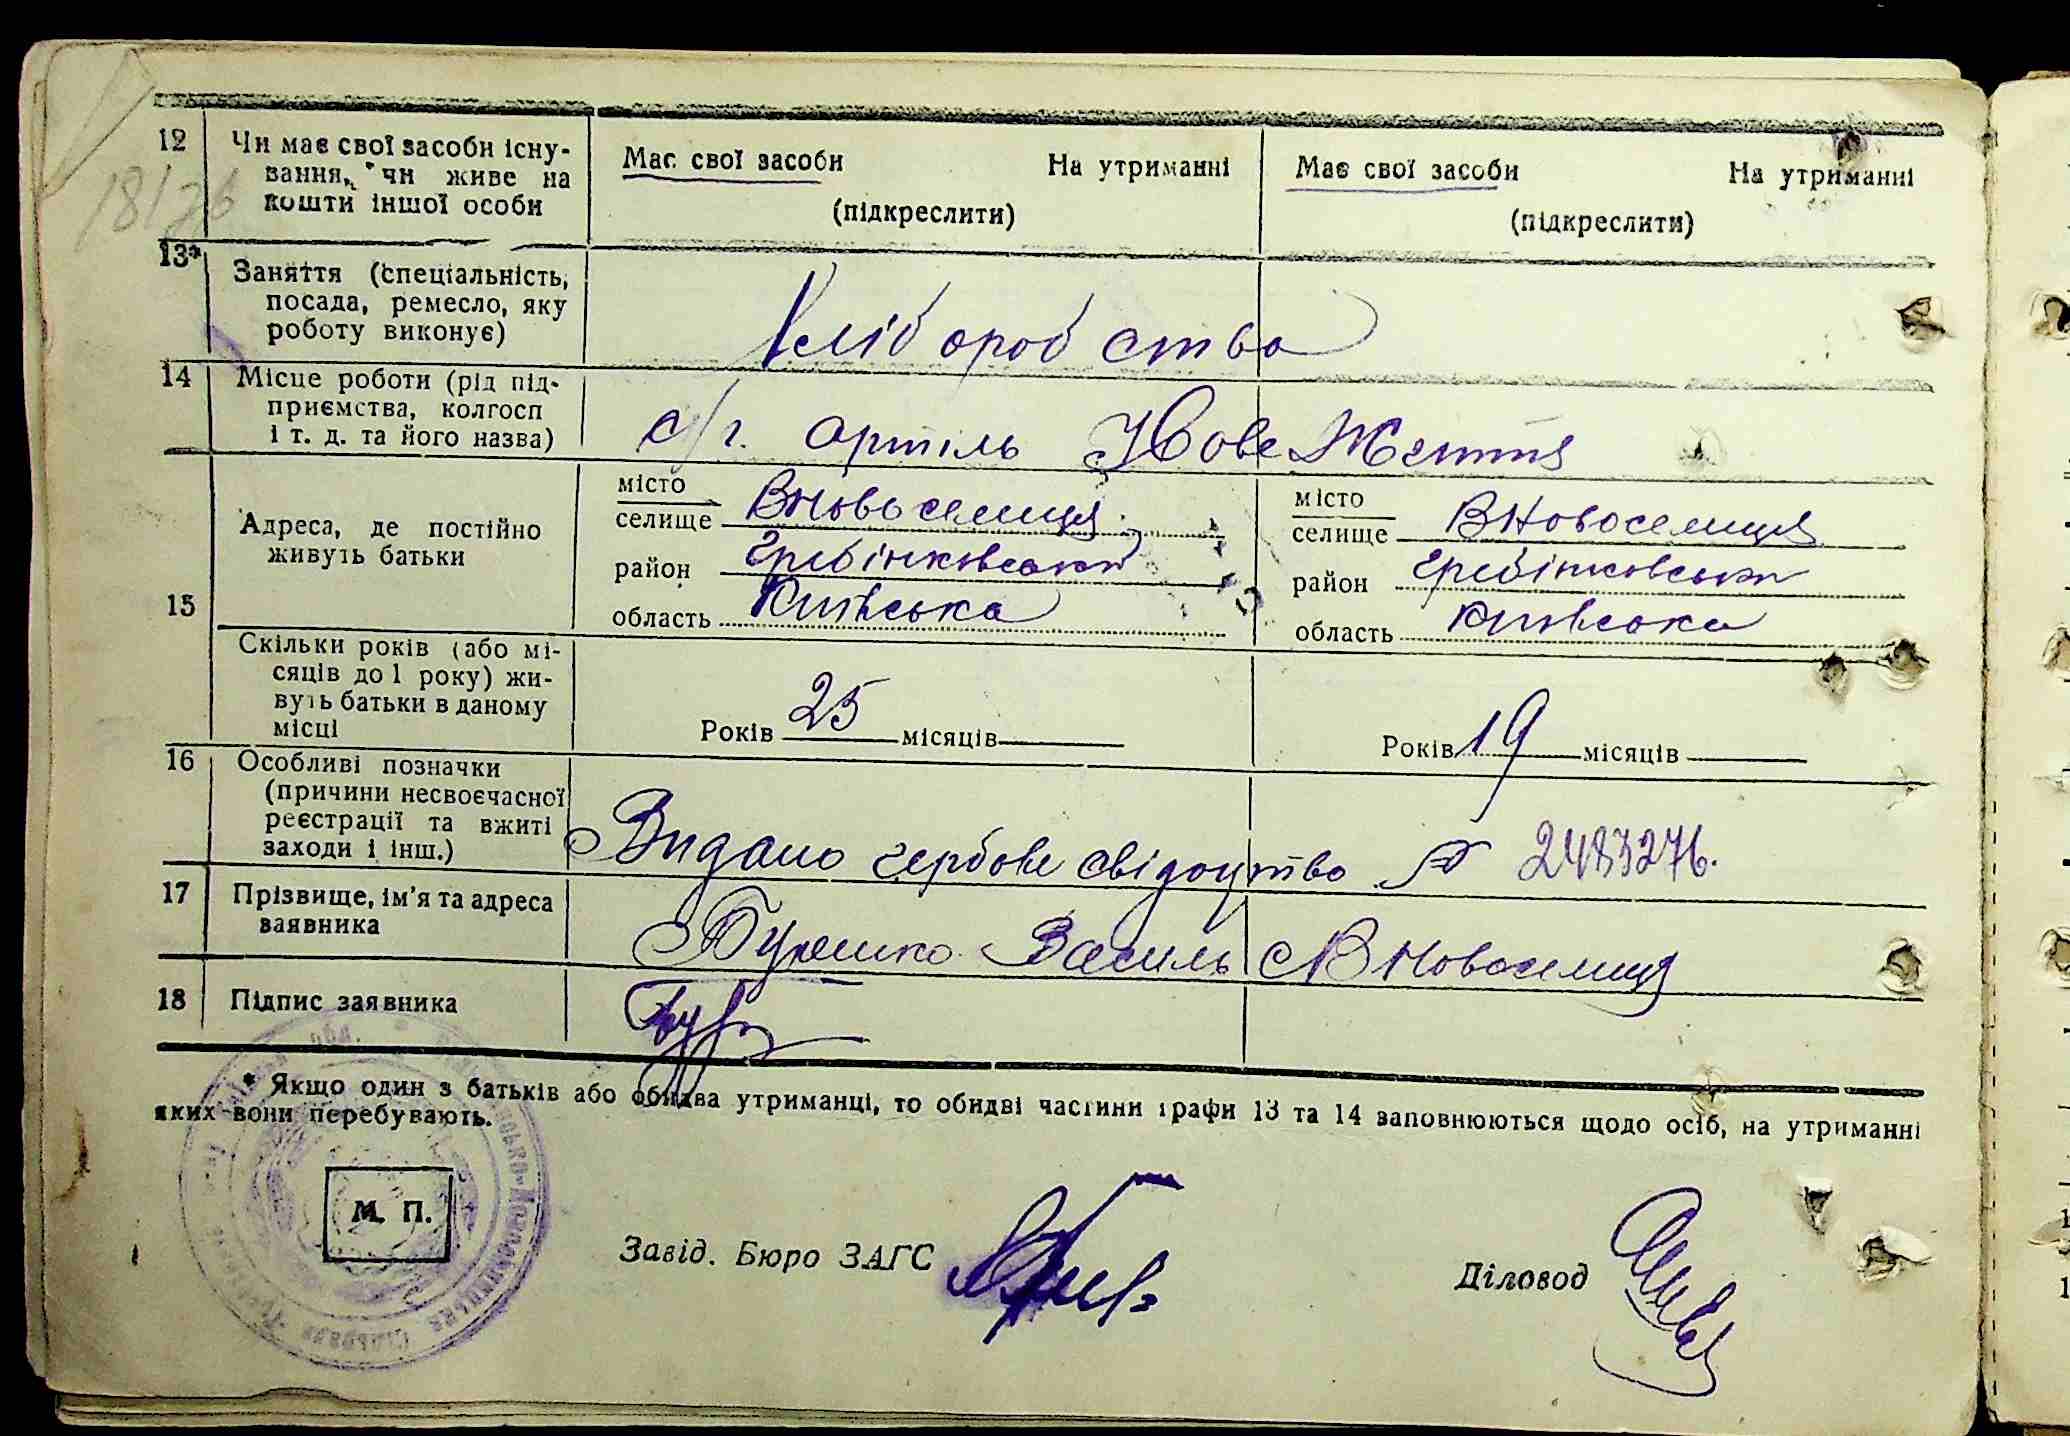 18/76
12 Чи має свої засоби існу-
вання, чи живе на
кошти іншої особи
Має свої засоби На утриманні
(підкреслити)
Має свої засоби На утриманні
(підкреслити)
13* Заняття (спеціальність,
посада, ремесло, яку
роботу виконує)
Хліборобство
14 Місце роботи (рід під-
приємства, колгосп
і т. д. та його назва)
с/г. артіль Нове Життя
15 Адреса, де постійно
живуть батьки
місто
селище ВНовоселиця
район Гребінковський
область Київська
місто
селище ВНовоселиця
район Гребінковський
область Київська
Скільки років (або мі-
сяців до 1 року) жи-
вуть батьки в даному
місці
Років 25 місяців
Років 19 місяців
16 Особливі позначки
(причини несвоєчасної
реєстрації та вжиті
заходи і інш.)
Видано гербове свідоцтво № 2483276.
17 Прізвище, ім'я та адреса
заявника
Василь ВНовоселиця
18 Підпис заявника
* Якщо один з батьків або обидва утриманці, то обидві частини графи 13 та 14 заповнюються щодо осіб, на утриманні
яких вони перебувають.
М. П.
Завід. Бюро ЗАГС
Діловод